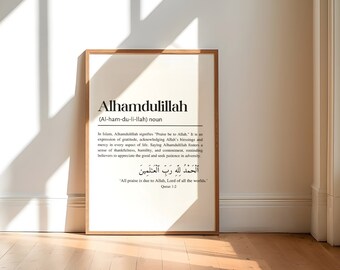 Alhamdulillah
(Al-ham-du-li-llah) noun
In Islam, Alhamdulillah signifies "Praise be to Allah." It is an
expression of gratitude, acknowledging Allah's blessings and
mercy in every aspect of life. Saying Alhamdulillah fosters a
sense of thankfulness, humility, and contentment, reminding
believers to appreciate the good and seek patience in adversity.
ٱلْحَمْدُ لِلَّهِ رَبِّ ٱلْعَٰلَمِينَ
"All praise is due to Allah, Lord of all the worlds."
Quran 1:2